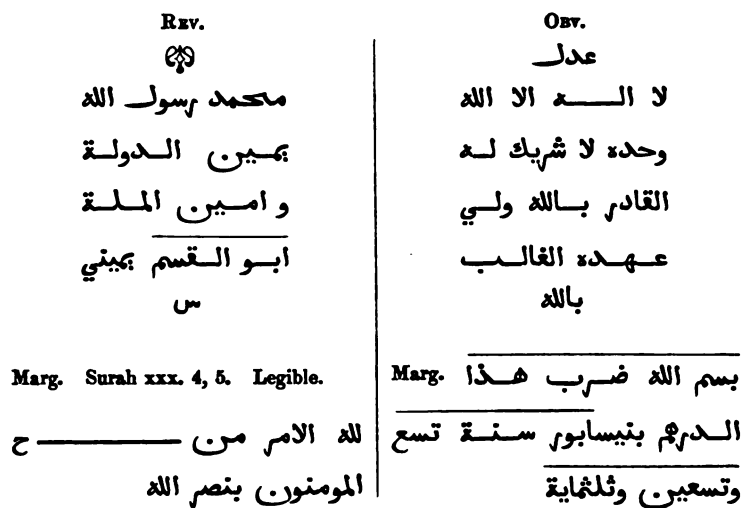 Rev.
محمد رسول الله
يمين الدولة
و امين الملة
ابو القسم يميني
س
Marg. Surah xxx. 4, 5. Legible.
لله الامر من ——— ح
المومنون بنصر الله
Obv.
عدل
لا اله الا الله
وحده لا شريك له
القادر بالله ولي
عهده الغالب
بالله
Marg. بسم الله ضرب هذا
الدرهم بنيسابور سنة تسع
وتسعين وثلثماية